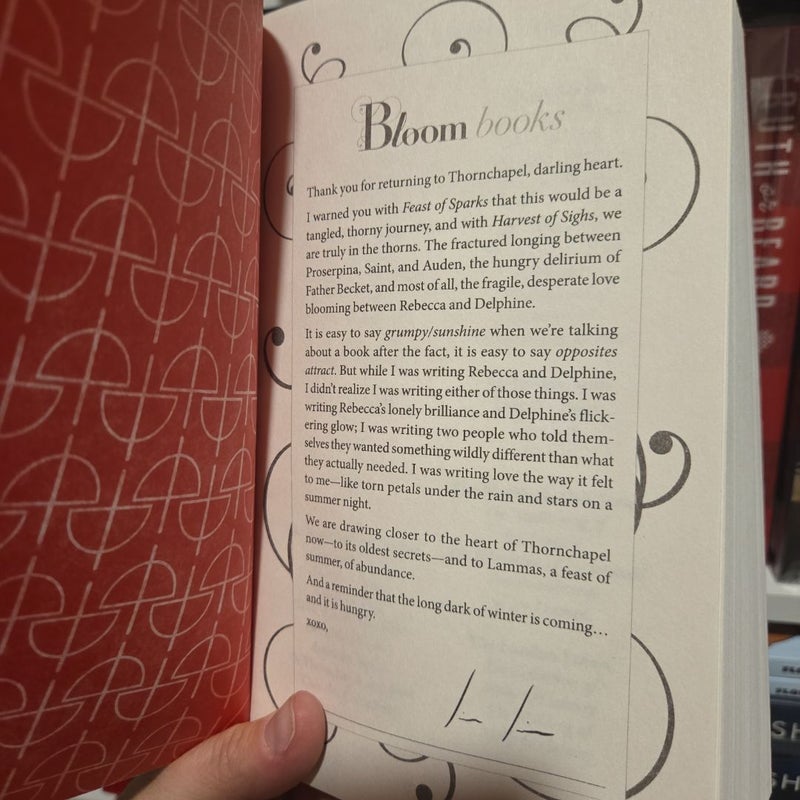 Bloom books
Thank you for returning to Thornchapel, darling heart.
I warned you with Feast of Sparks that this would be a
tangled, thorny journey, and with Harvest of Sighs, we
are truly in the thorns. The fractured longing between
Proserpina, Saint, and Auden, the hungry delirium of
Father Becket, and most of all, the fragile, desperate love
blooming between Rebecca and Delphine.
It is easy to say grumpy/sunshine when we’re talking
about a book after the fact, it is easy to say opposites
attract. But while I was writing Rebecca and Delphine,
I didn’t realize I was writing either of those things. I was
writing Rebecca’s lonely brilliance and Delphine’s flick-
ering glow; I was writing two people who told them-
selves they wanted something wildly different than what
they actually needed. I was writing love the way it felt
to me—like torn petals under the rain and stars on a
summer night.
We are drawing closer to the heart of Thornchapel
now—to its oldest secrets—and to Lammas, a feast of
summer, of abundance.
And a reminder that the long dark of winter is coming…
and it is hungry.
xoxo,
RUTH
BEARD
SH
SH